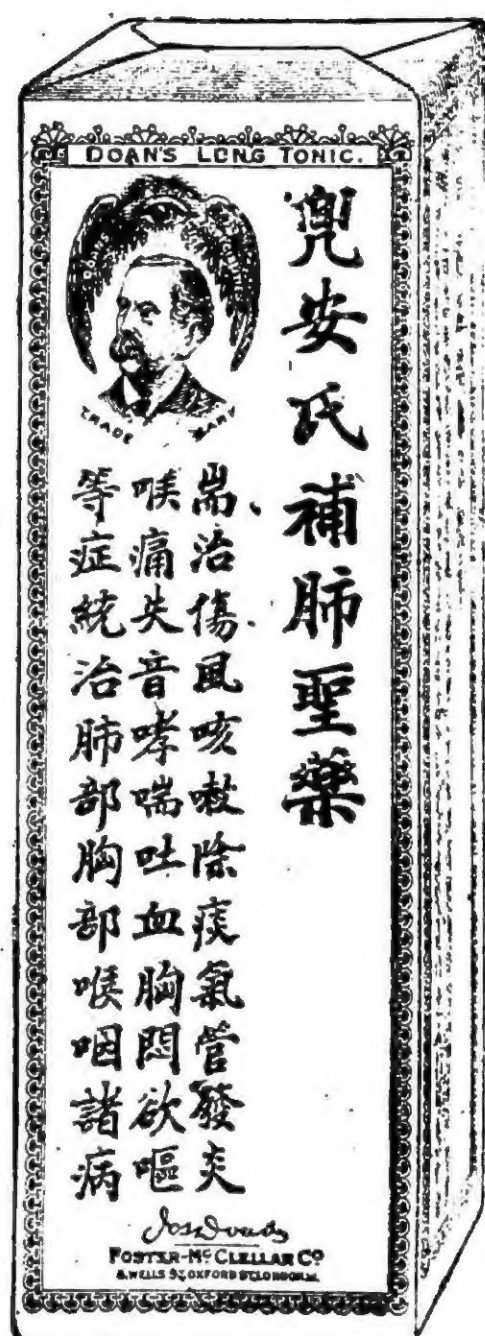 DOAN'S LUNG TONIC.
DOAN'S
TRADE MARK
兜安氏補肺聖藥
耑治傷風咳嗽除痰氣管發炎
喉痛失音哮喘吐血胸悶欲嘔
等症統治肺部胸部喉咽諸病
Jos. Doan
FOSTER-McCLELLAN CO
8, WELLS ST, OXFORD ST, LONDON, W.